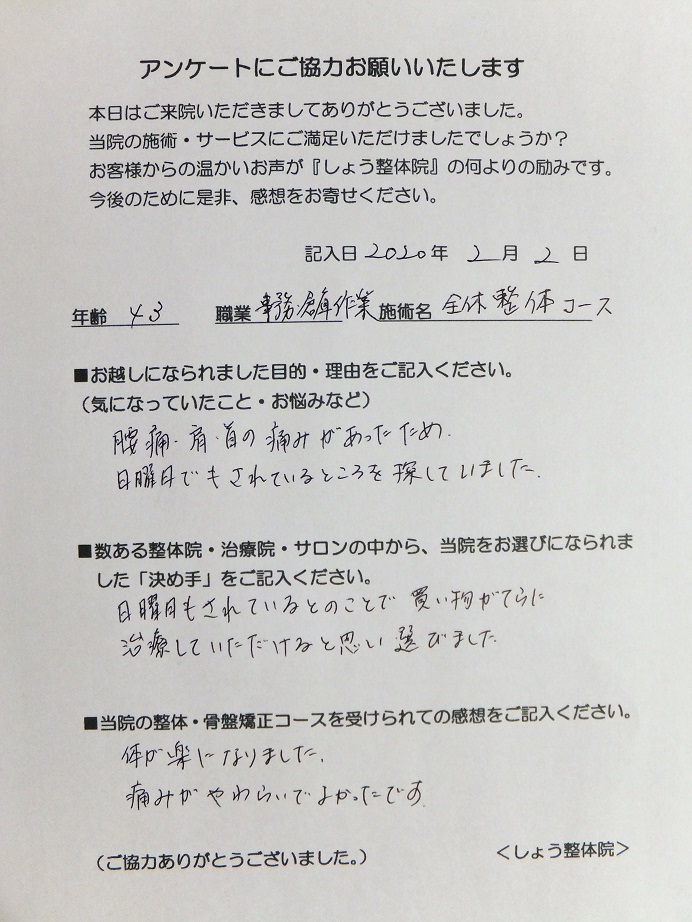 アンケートにご協力お願いいたします
本日はご来院いただきましてありがとうございました。
当院の施術・サービスにご満足いただけましたでしょうか？
お客様からの温かいお声が『しょう整体院』の何よりの励みです。
今後のために是非、感想をお寄せください。
記入日 2020年 2月 2日
年齢 43 職業 事務・倉庫作業 施術名 全体整体コース
■お越しになられました目的・理由をご記入ください。
（気になっていたこと・お悩みなど）
腰痛・肩・首の痛みがあったため.
日曜日でもされているところを探していました.
■数ある整体院・治療院・サロンの中から、当院をお選びになられま
した「決め手」をご記入ください。
日曜日もされているとのことで買い物がてらに
治療していただけると思い選びました
■当院の整体・骨盤矯正コースを受けられての感想をご記入ください。
体が楽になりました.
痛みがやわらいでよかったです
（ご協力ありがとうございました。） ＜しょう整体院＞